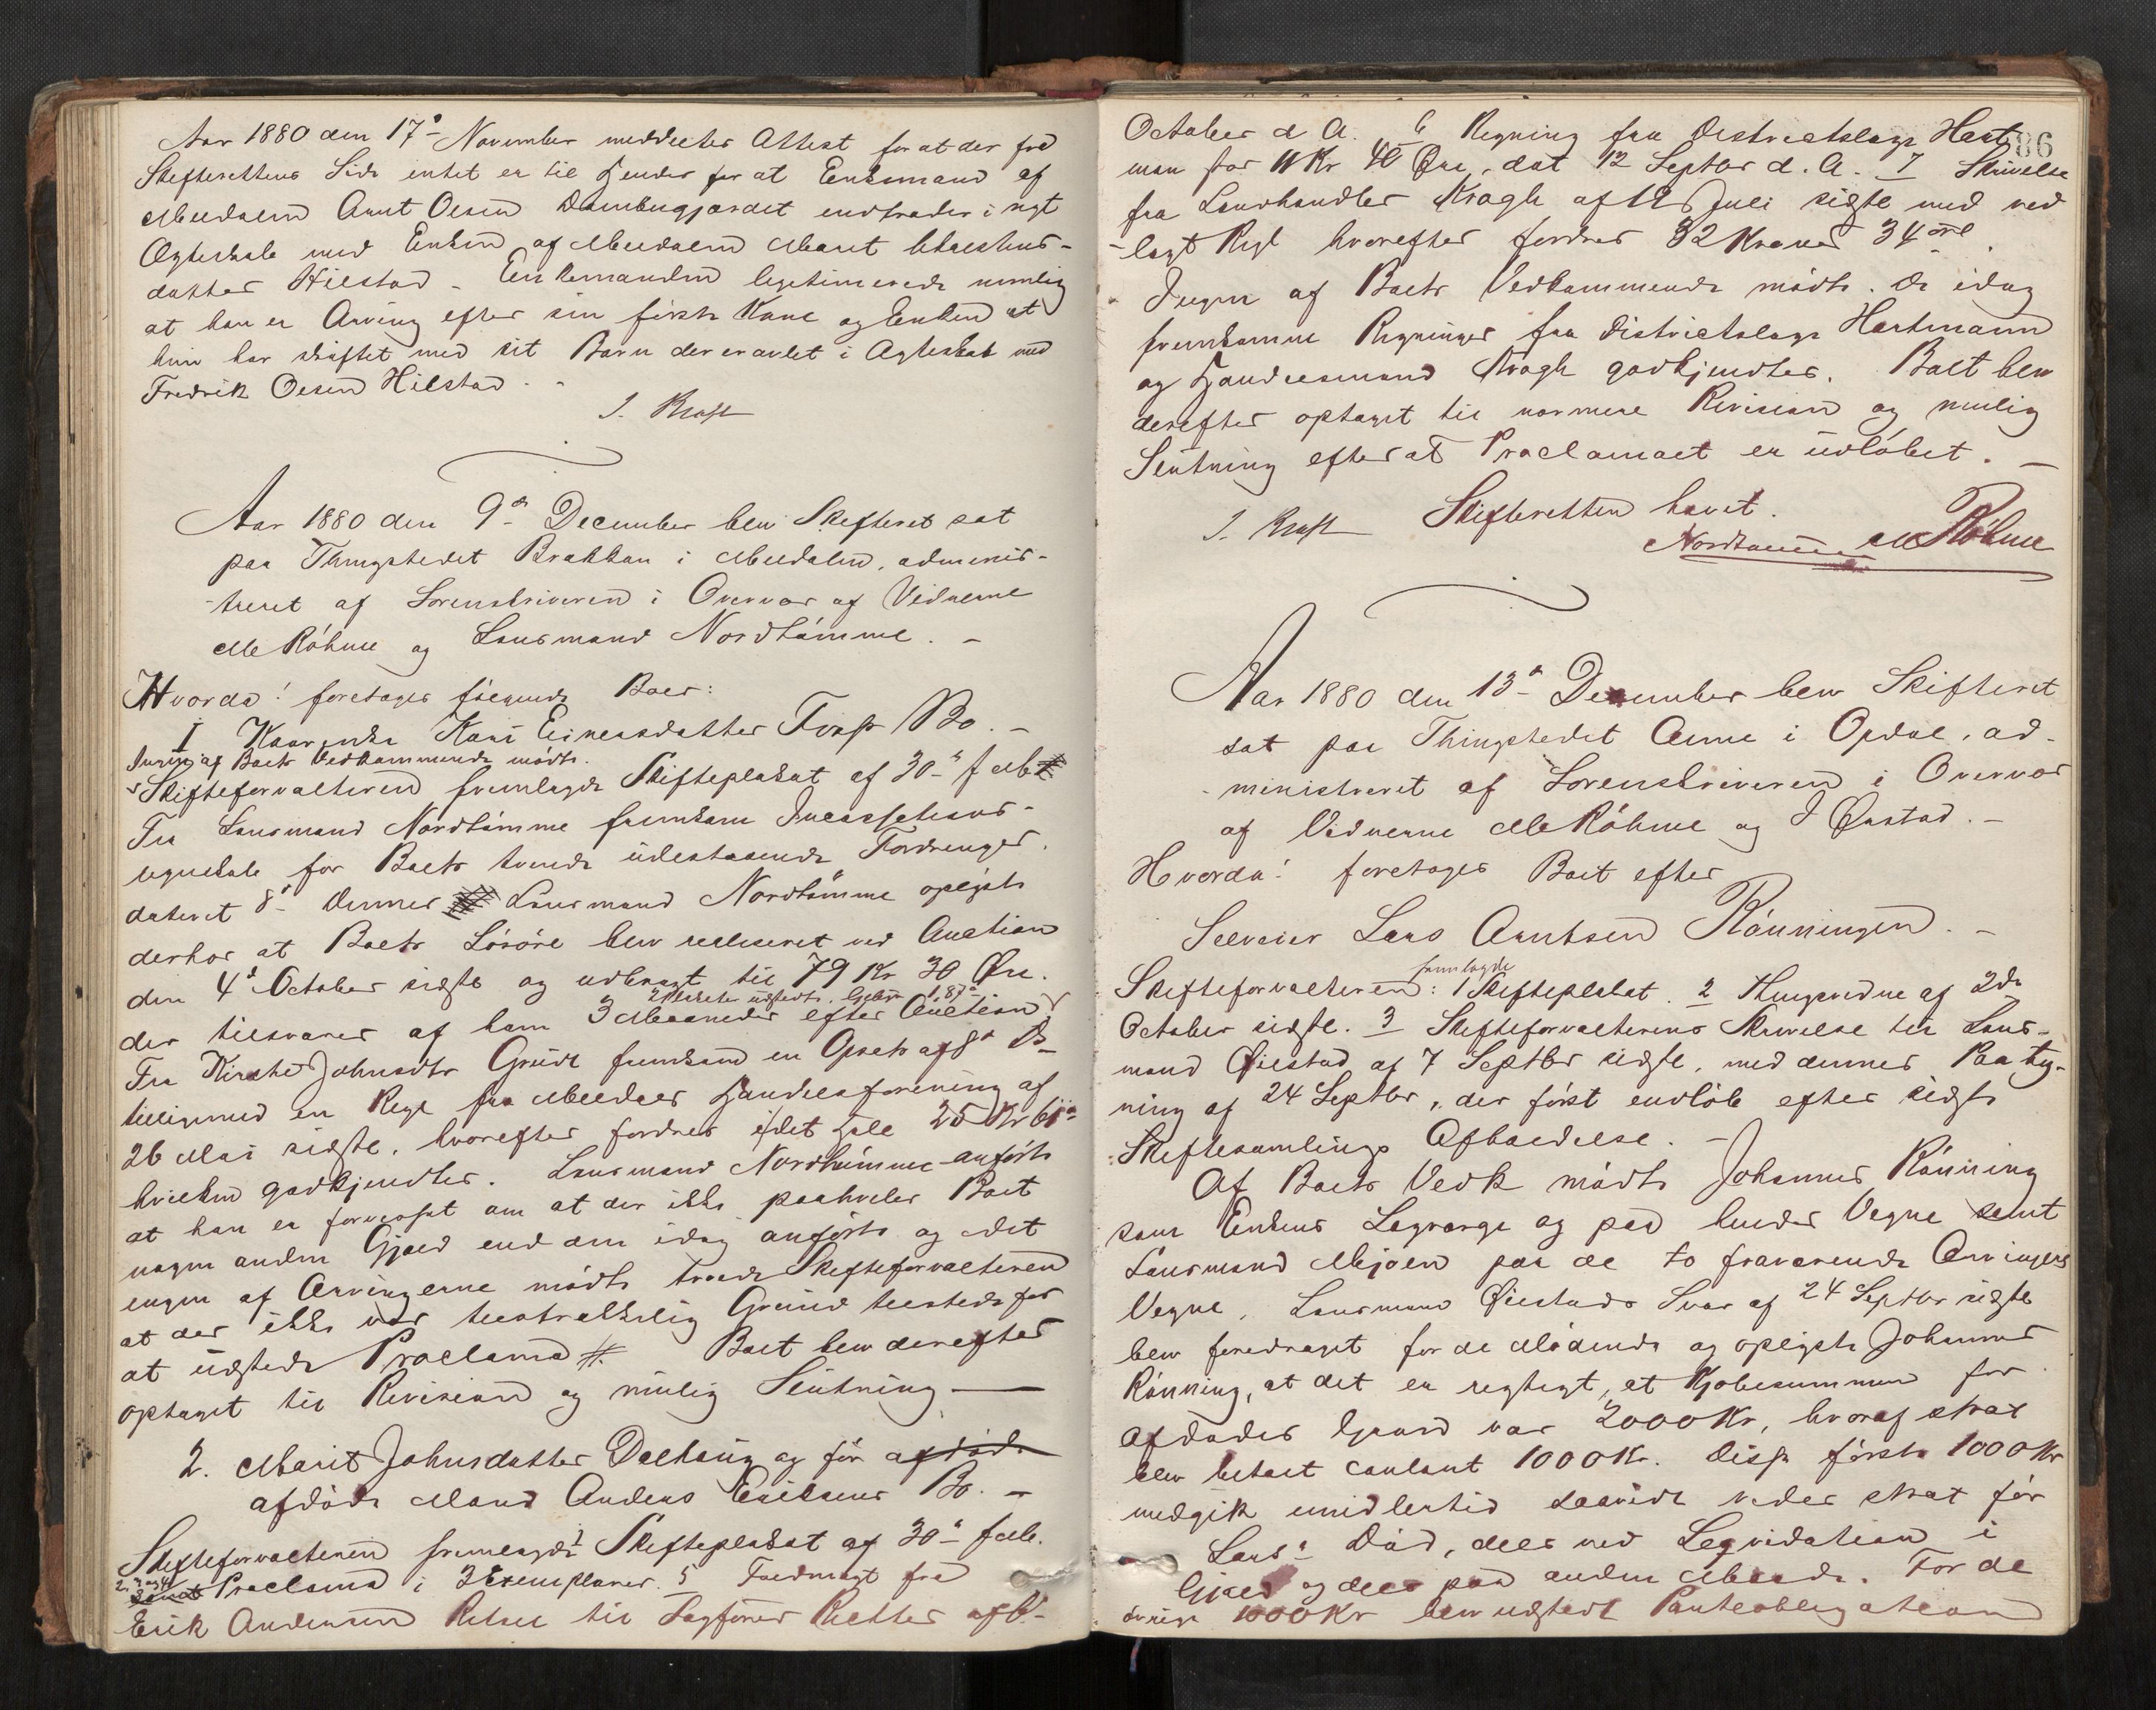 Aar 1880 den 17de November meddeeltes Attest for at der fra
Skifterettens Side intet er til Hinder for at Enkemand af
Meldalen Arnt Olsen Dambugjærdet indtræder i nyt
Ægteskab med Enken af Meldalen Marit
datter Hilstad. Enkemanden legitimerede nemlig
at han er Arving efter sin første Kone og Enken at
hun har skiftet med sit Barn der er avlet i Ægteskab med
Fredrik Olsen Hilstad.
J. Kraft
Aar 1880 den 9de December blev Skifteret sat
paa Thingstedet Brækkan i Meldalen, adminis-
treret af Sorenskriveren i Overvær af Vidnerne
M Röhme og Lensmand Nordtømme. -
Hvorda! foretoges følgende Boer:
1 Kaarenke Kari Einersdatter Bo. -
Ingen af Boets Vedkommende mødte.
Skifteforvalteren fremlagde Skifteplakat af 30te f. M.
Fra Lensmand Nordtømme fremkom Incassations-
regnskab for Boets tvende udestaaende Fordringer.
dateret 8de dennes Lensmand Nordtømme oplyste
derhos at Boets Løsøre blev realiseret ved Auction
den 4de October sidste og udbragt til 79 Kr 30 Øre.
2 Plakater udstedte. Gebyr 1.87
der tilsvares af ham 3 Maaneder efter Auction
Fra Kirsti Johnsdtr Grüdt fremkom en Opsats af 8de ds
tilligemed en Regn fra Meldals Handelsforening af
26 Mai sidste, hvorefter fordres i det Hele 25 Kr
hvilken godkjendtes. Lensmand Nordtømme anførte
at han er forvisset om at der ikke paahviler Boet
nogen anden Gjæld end den idag anførte og idet
ingen af Arvingerne mødte troede Skifteforvalteren
at der ikke var tilstrækkelig Grund tilstede for
at udstede Proclama. Boet blev derefter
optaget til Revision og mulig Slutning
2. Marit Johnsdatter Dalhaug og før afdød
afdøde Mand Anders Eriksens Bo. -
Skifteforvalteren fremlagde 1 Skifteplakat af 30te f. M.
2, 3 og 4 Proclama i 3 Exemplarer. 5 Fuldmagt fra
Erik Andersen til Sagfører Richter af 6te
86
October d. A. 6 Regning fra Districtslæge Hart
man for 11 Kr 40 Øre, dat 12 Septbr d. A. 7 Skrivelse
fra Landhandler Kragh af 12 Juli sidste med ved
lagt Regn hvorefter fordres 32 Kroner 34 Øre.
Ingen af Boets Vedkommende mødte. De idag
fremkomne Regninger fra Districtslæge Hartmann
og Handelsmand Kragh godkjendtes. Boet blev
derefter optaget til nærmere Revision og mulig
Slutning efterat Proclamaet er udløbet. -
Skifteretten hævet.
J. Kraft Nordtømme M Röhme
Aar 1880 den 13de December blev Skifteret
sat paa Thingstedet Aune i Opdal, ad-
ministreret af Sorenskriveren i Overvær
af Vidnerne M Röhme og J Ørstad. -
Hvorda! foretoges Boet efter
Selveier Lars Arntsen Rönningen. -
fremlagde
Skifteforvalteren: 1 Skifteplakat. 2 Thingsvidne af 2de
October sidste. 3 Skifteforvalterens Skrivelse til Lens-
mand Øiestad af 7 Septbr sidste, med dennes Paateg-
ning af 24 Septbr, der først indløb efter sidste
Skiftesamlings Afholdelse. -
Af Boets Vedk mødte Johannes Rönning
som Enkens Lagværge og paa hendes Vegne samt
Lensmand Mjøen paa de to fraværende Arvingers
Vegne. Lensmand Øiestads Svar af 24 Septbr sidste
blev foredraget for de Mødende og oplyste Johannes
Rönning, at det er rigtigt, at Kjøbesummen for
Afdødes Gaard var 2000 Kr, hvoraf strax
blev betalt contant 1000 Kr. Disse første 1000 Kr
medgik imidlertid saavidt vides strax før
Lars's Død, dels ved Leqvidation i
Gjæld og dels paa anden Maade. For de
øvrige 1000 Kr blev udstedt Panteobligation